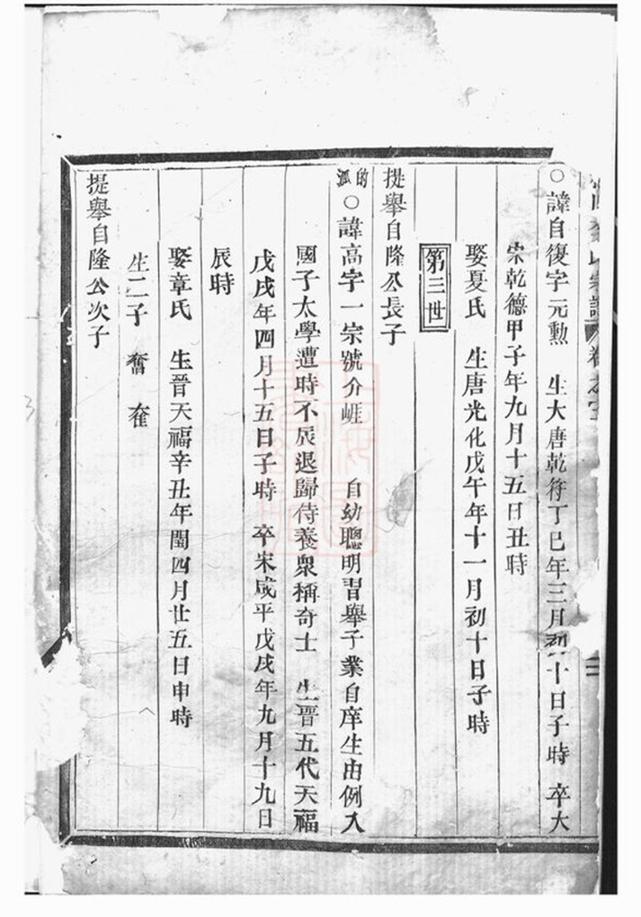 宗譜 卷之
○諱自復字元勳 生大唐乾符丁巳年三月初十日子時 卒大
宋乾德甲子年九月十五日丑時
娶夏氏 生唐光化戊午年十一月初十日子時
第三世
提舉自隆公長子
的派○諱高字一宗號介崕 自幼聰明習舉子業自庠生由例入
國子太學遭時不辰退歸侍養衆稱奇士 生晋五代天福
戊戌年四月十五日子時 卒宋咸平戊戌年九月十九日
辰時
娶章氏 生晉天福辛丑年閏四月廿五日申時
生二子 奮 奞
提舉自隆公次子